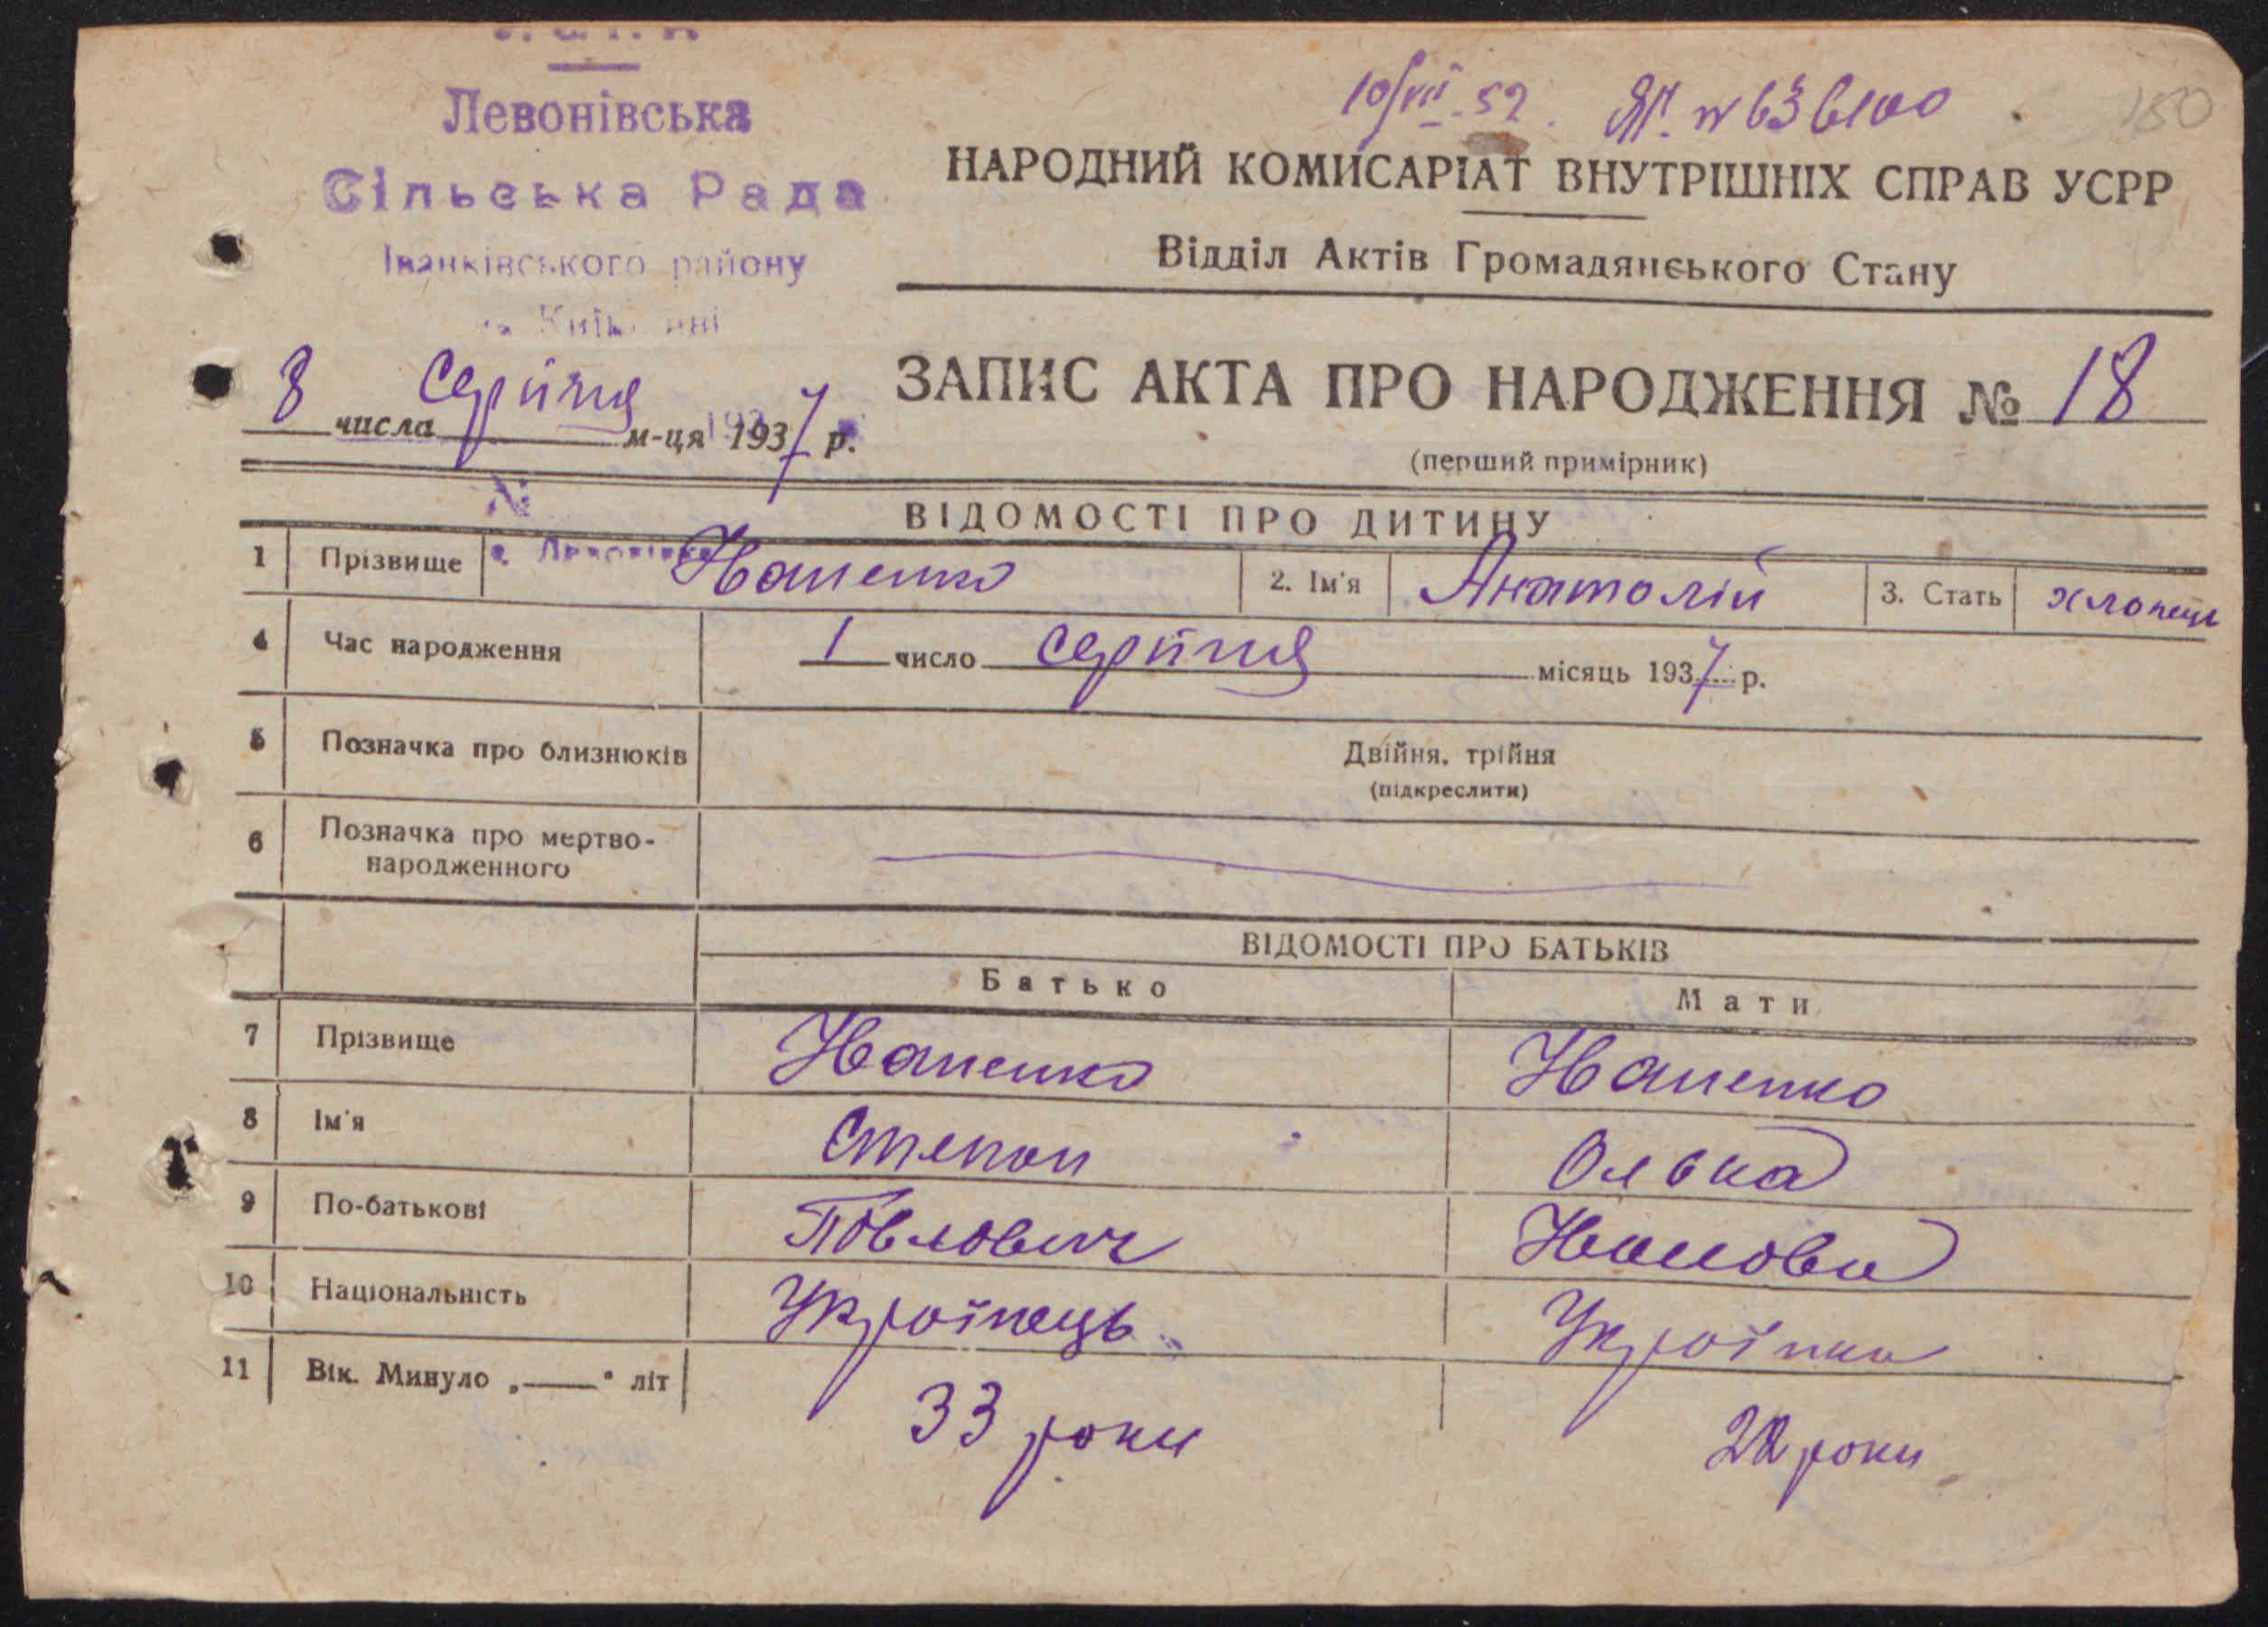 Левонівська
Сільська Рада
Іванківського району
на Київщині
10/VII-52. ЯП. № 636100
150
НАРОДНИЙ КОМИСАРІАТ ВНУТРІШНІХ СПРАВ УСРР
Відділ Актів Громадянського Стану
8 числа серпня м-ця 1937 р.
ЗАПИС АКТА ПРО НАРОДЖЕННЯ № 18
(перший примірник)
№
с. Левонівка
ВІДОМОСТІ ПРО ДИТИНУ
1 Прізвище Іваненко 2. Ім'я Анатолій 3. Стать хлопець
4 Час народження 1 число серпня місяць 1937 р.
5 Позначка про близнюків Двійня, трійня
(підкреслити)
6 Позначка про мертво-
народженного
ВІДОМОСТІ ПРО БАТЬКІВ
Батько Мати
7 Прізвище Іваненко Іваненко
8 Ім'я Степан Ольга
9 По-батькові Павлович Іванова
10 Національність Українець Українка
11 Вік. Минуло „——" літ 33 роки 22 роки